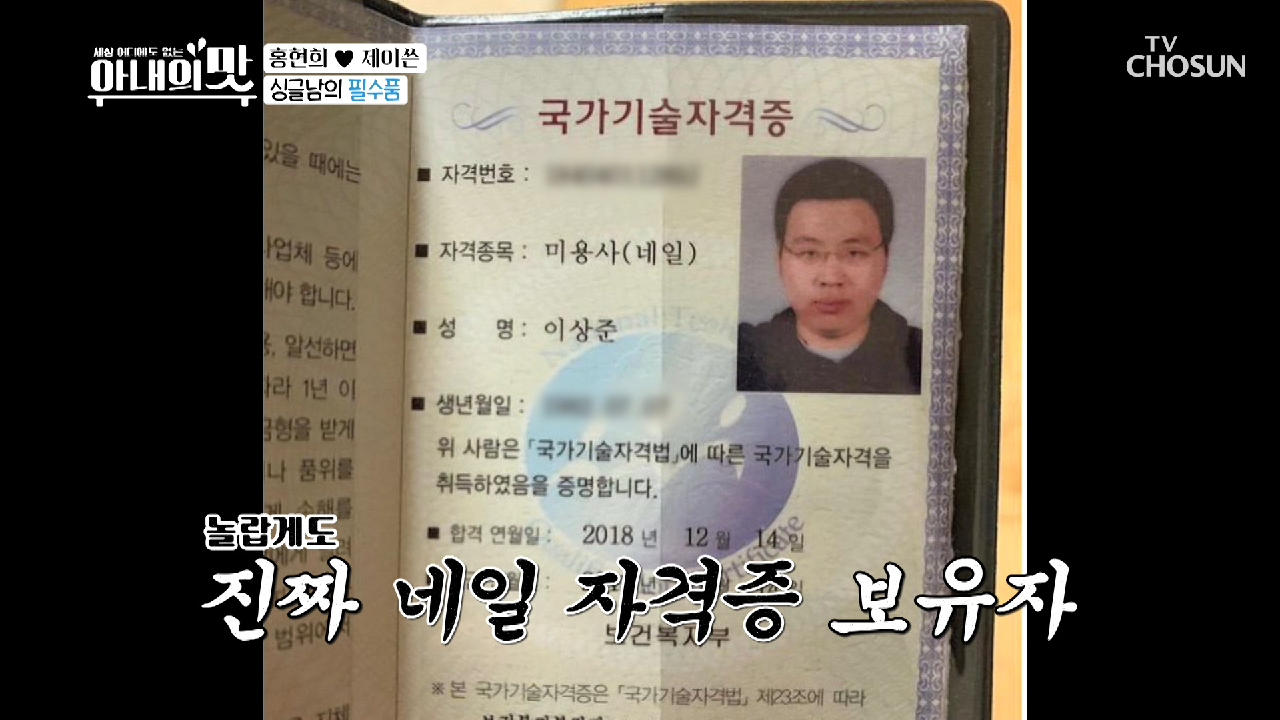 세상 어디에도 없는
아내의 맛
홍현희 ♥ 제이쓴
싱글남의 필수품
TV
CHOSUN
있을 때에는
사업체 등에
해야 합니다.
알선하면
1년 이
금형을 받게
나 품위를
국가기술자격증
■ 자격번호 :
■ 자격종목 : 미용사(네일)
■ 성 명 : 이상준
■ 생년월일 :
위 사람은 「국가기술자격법」에 따른 국가기술자격을
취득하였음을 증명합니다.
■ 합격 연월일 : 2018 년 12 월 14 일
놀랍게도
진짜 네일 자격증 보유자
보건복지부
※ 본 국가기술자격증은 「국가기술자격법」 제23조에 따라